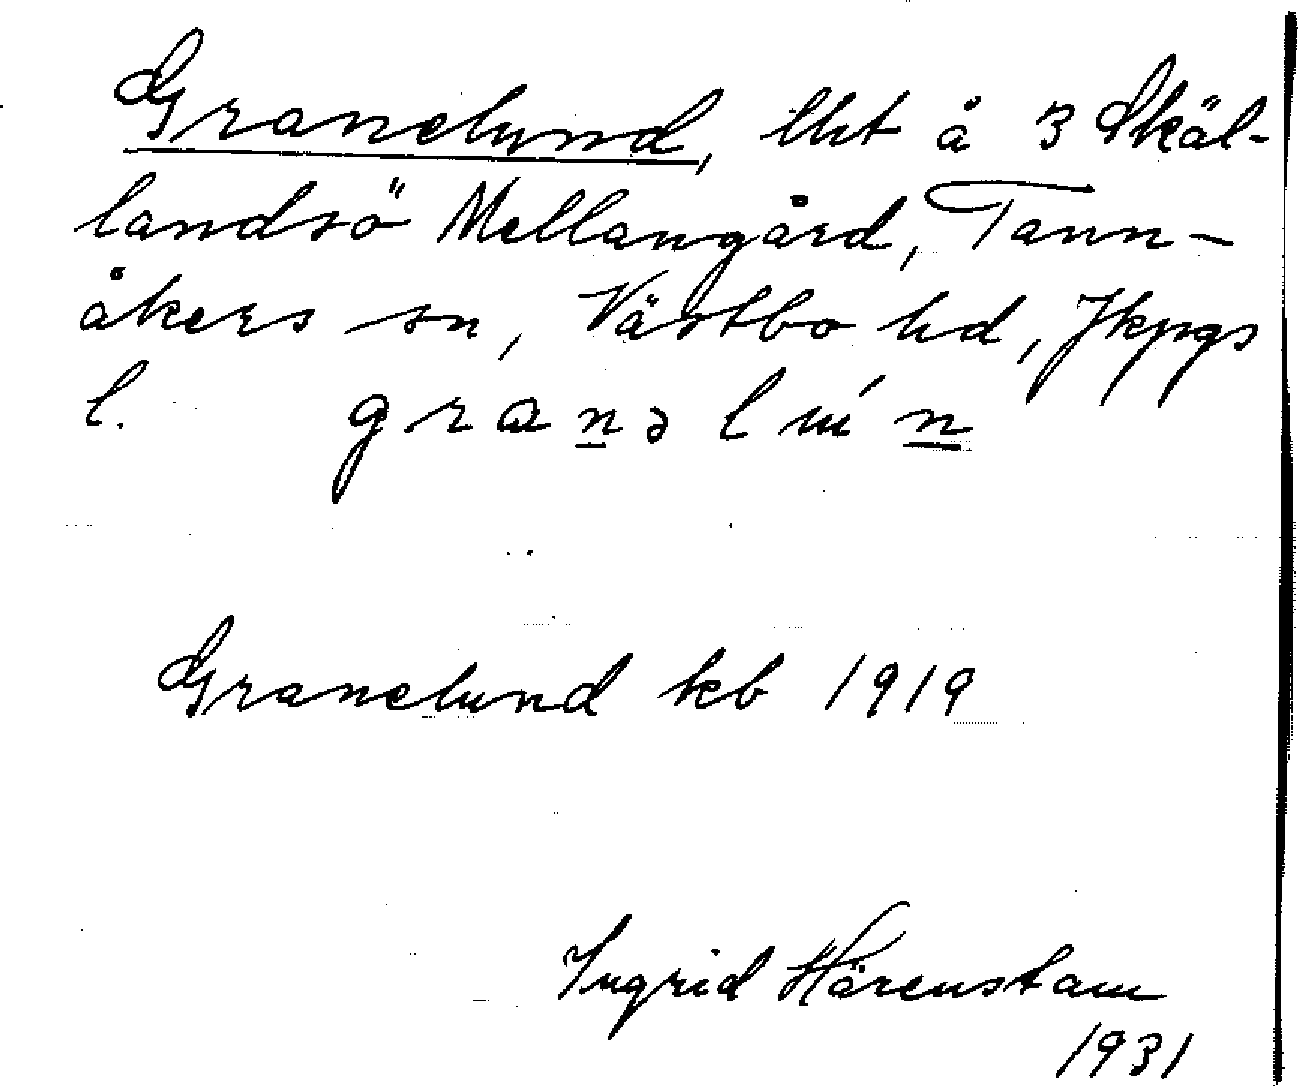 Granelund, lht å 3 Skäl-
landsö Mellangård, Tann-
åkers sn, Västbo hd, Jkpgs
l. granəlún
Granelund kb 1919
Ingrid Härenstam
1931